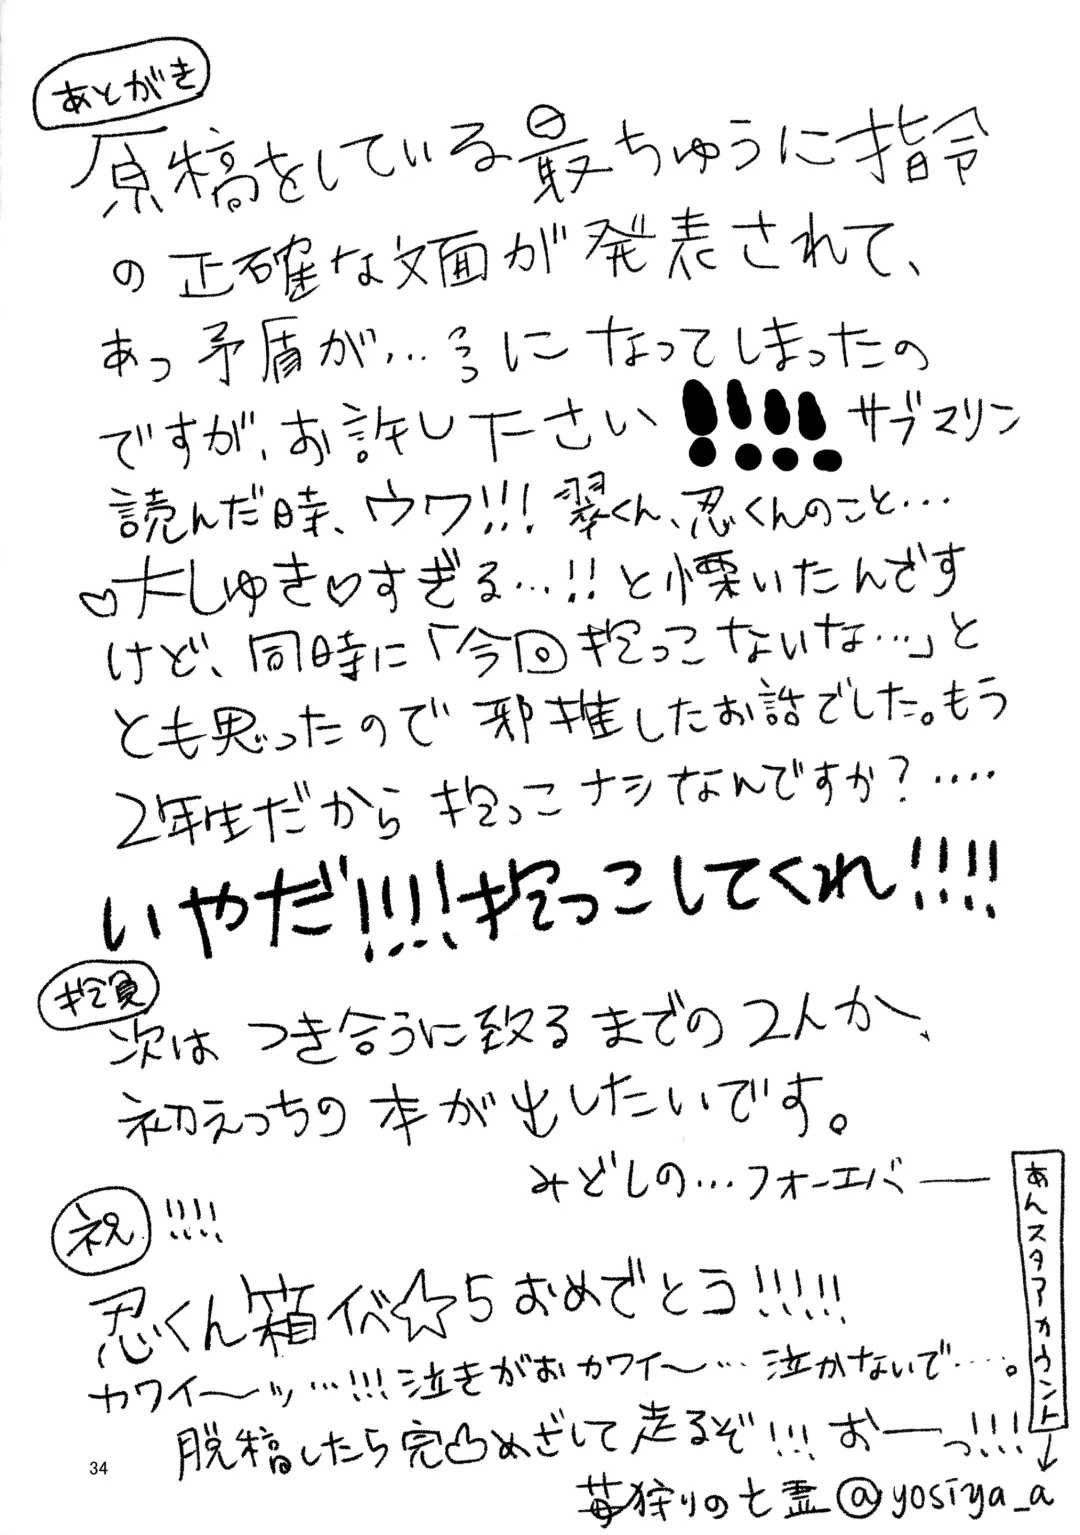 あとがき
原稿をしている最ちゅうに指令
の正確な文面が発表されて、
あっ矛盾が…っっになってしまったの
ですが、お許し下さい!!!!サブマリン
読んだ時、ウワ!!!翠くん、忍くんのこと…
♡大しゅき♡すぎる…!!と慄いたんです
けど、同時に「今回抱っこないな…」と
とも思ったので邪推したお話でした。もう
2年生だから抱っこナシなんですか?‥‥
いやだ!!!!抱っこしてくれ!!!!
次は つき合うに致るまでの2人か、
初えっちの本が出したいです。
みどしの…フォーエバー
祝!!!!
忍くん箱イベ☆5おめでとう!!!!!
カワイ〜ッ…!!!泣きがおカワイ〜…泣かないで…。
脱稿したら完凸めざして走るぞ!!!おーっ!!!
あんスタアカウント↓
苺狩りの七霊@yosiya_a
34